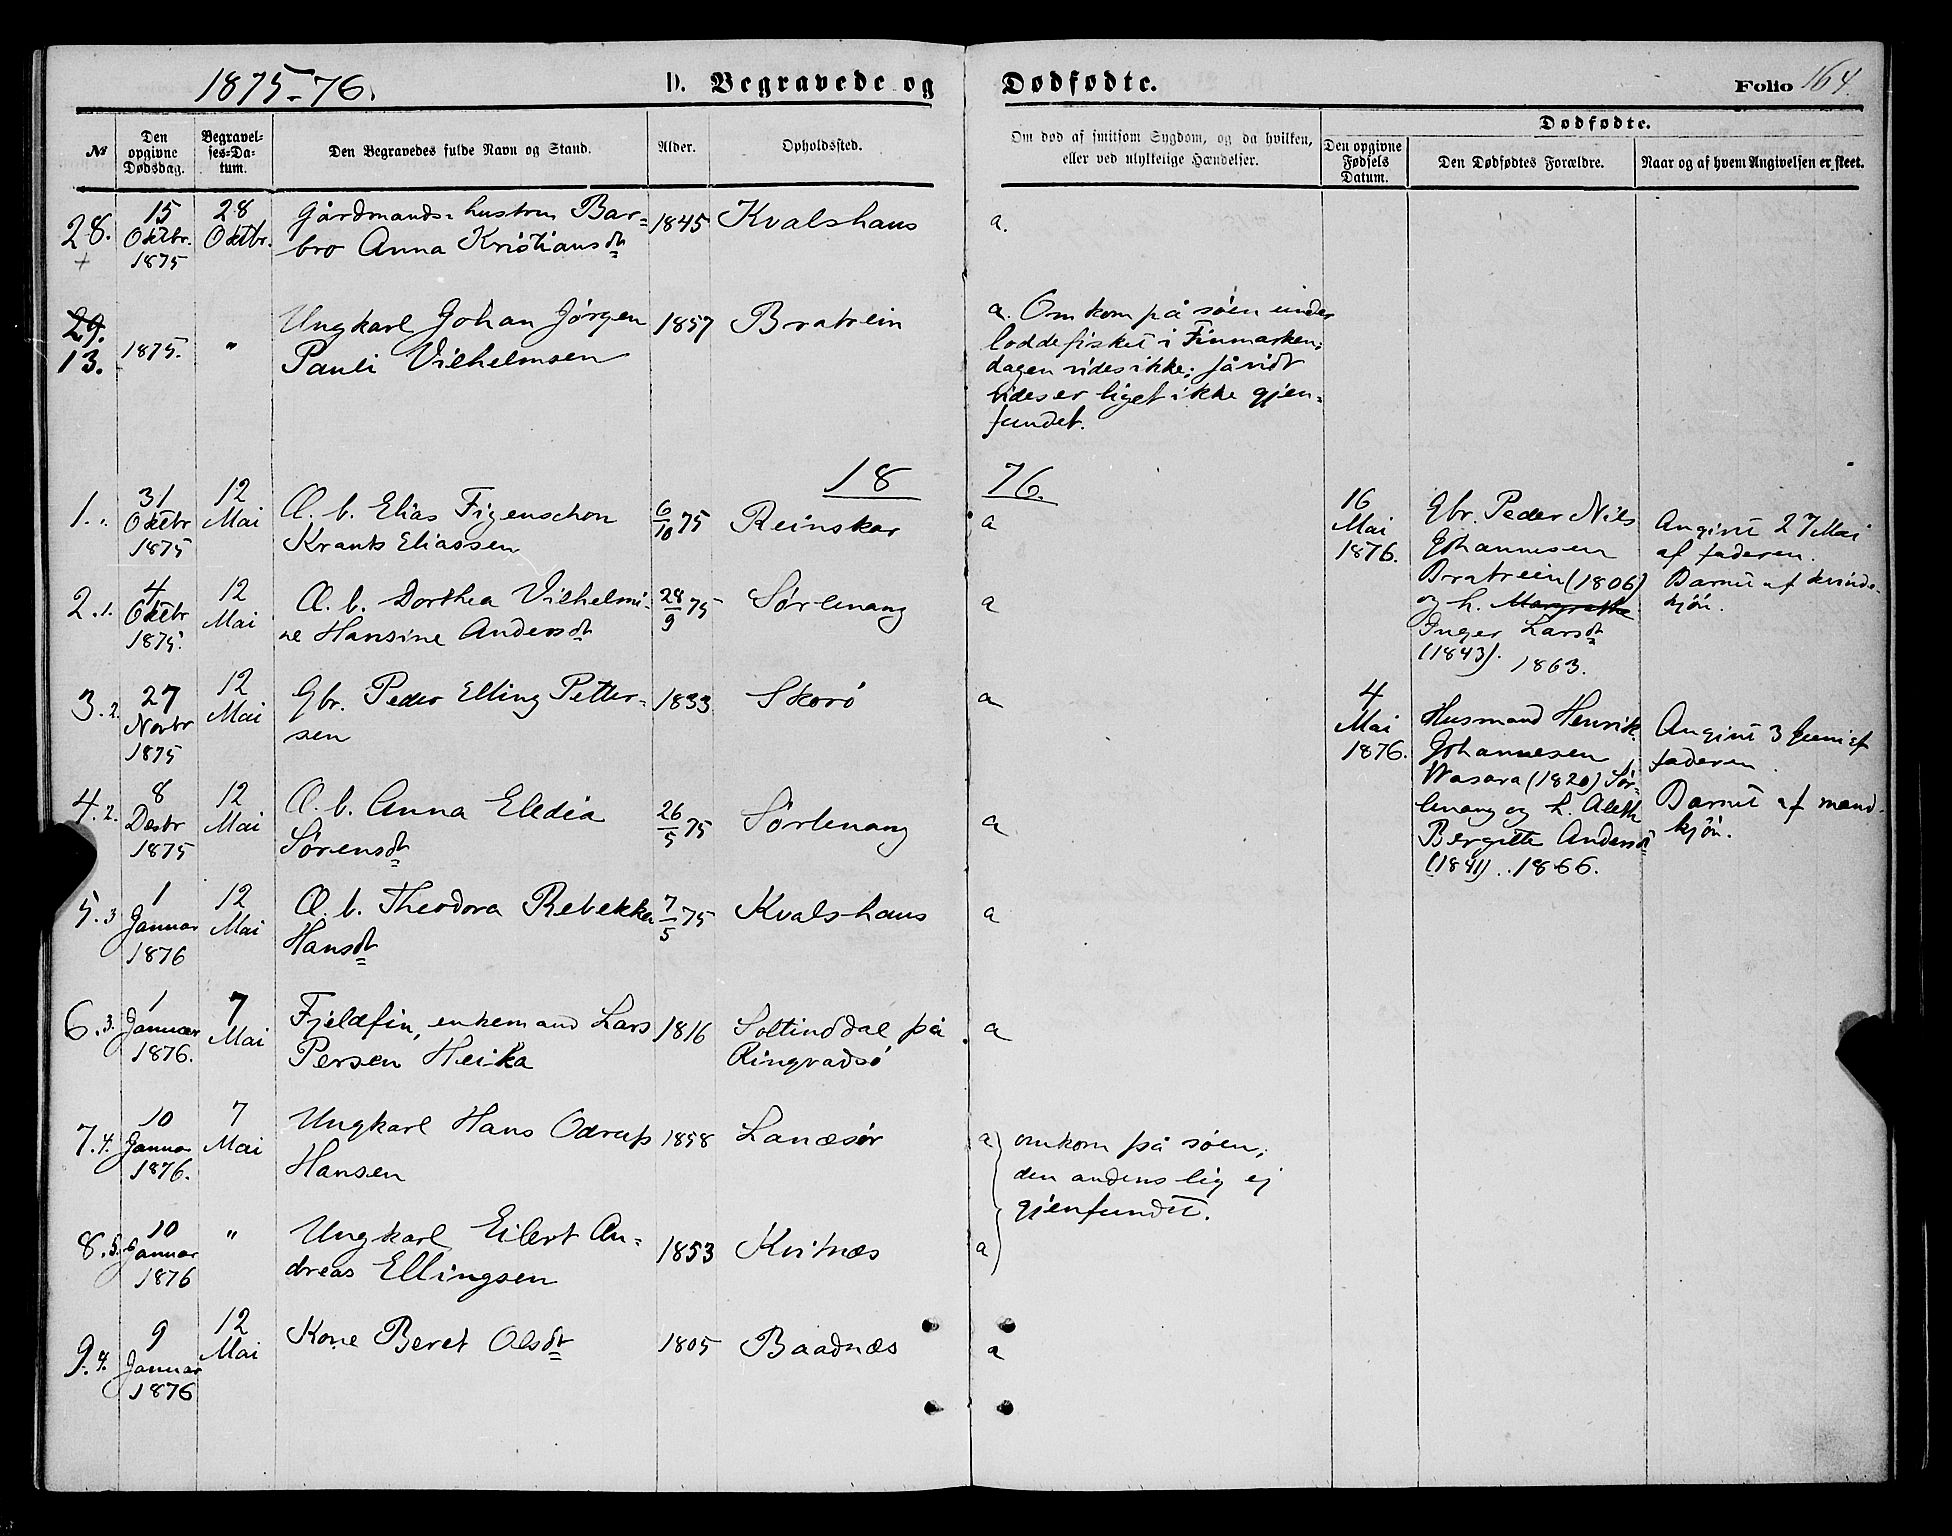 1875-76.
D. Begravede og Dødfødte.
Folio 164.
No
Den opgivne Dødsdag.
Begravel-ses-Da-tum.
Den Begravedes fulde Navn og Stand.
Alder.
Opholdssted.
Om død af smitsom Sygdom, og da hvilken,
eller ved ulykkelige Hændelser.
Dødfødte.
Den opgivne Fødsels Datum.
Den Dødfødtes Forældre.
Naar og af hvem Angivelsen er skeet.
28. 15 Oktbr. 1875 28 Oktbr. Gårdmands-hustru Bar= 1845 Kvalshaus a.
+ bro Anna Kristiansdt
29. 13. 1875. " Ungkarl Johan Jørgen 1857 Bratrein a. Omkom på søen under
Pauli Vilhelmsen loddefisket i Finmarken;
dagen vides ikke; såvidt
vides er liget ikke gjen=
fundet.
1876.
1. 31 Oktbr 1875 12 Mai Æ. b. Elias Figenschou 6/10 75 Reinskar a
Krantz Eliassen
2. 1. 4 Oktbr 1875. 12 Mai Æ. b. Dorthea Vilhelmi= 28/9 75 Sørlenang a
ne Hansine Andersdt
3. 2. 27 Novbr 1875 12 Mai Gbr. Peder Elling Petter= 1833 Skorø a
sen
4. 2. 8 Desbr 1875 12 Mai Æ. b. Anna Eledia 26/5 75 Sørlenang a
Sørensdt
5. 3 1 Januar 1876 12 Mai Æ. b. Theodora Rebekka 7/5 75 Kvalshaus a
Hansdt
6. 3. 1 Januar 1876. 7 Mai Fjeldfin, enkemand Lars 1816 Soltinddal på a
Persen Heika Ringvadsø
7. 4. 10 Januar 1876. 7 Mai Ungkarl Hans Odrup 1858 Lanæsør a omkom på søen;
Hansen den andens lig ej
gjenfundet.
8. 5. 10 Januar 1876 " Ungkarl Eilert An= 1853 Kvitnæs a
dreas Ellingsen
9. 4. 9 Januar 1876 12 Mai Kone Beret Olsdt 1805 Baadnæs a
16 Mai 1876. Gbr. Peder Nils
Johannesen
Bratrein (1806)
og h. Margrethe
Inger Larsdt
(1843). 1863.
Angivet 27 Mai
af faderen.
Barnet af kvinde-
kjøn.
4 Mai 1876. Husmand Henrik
Johannesen
Wasara (1820) Sør=
lenang og h. Aleth
Bergitte Andersdt
(1841). 1866.
Angivet 3 Juni af
faderen.
Barnet af mand-
kjøn.